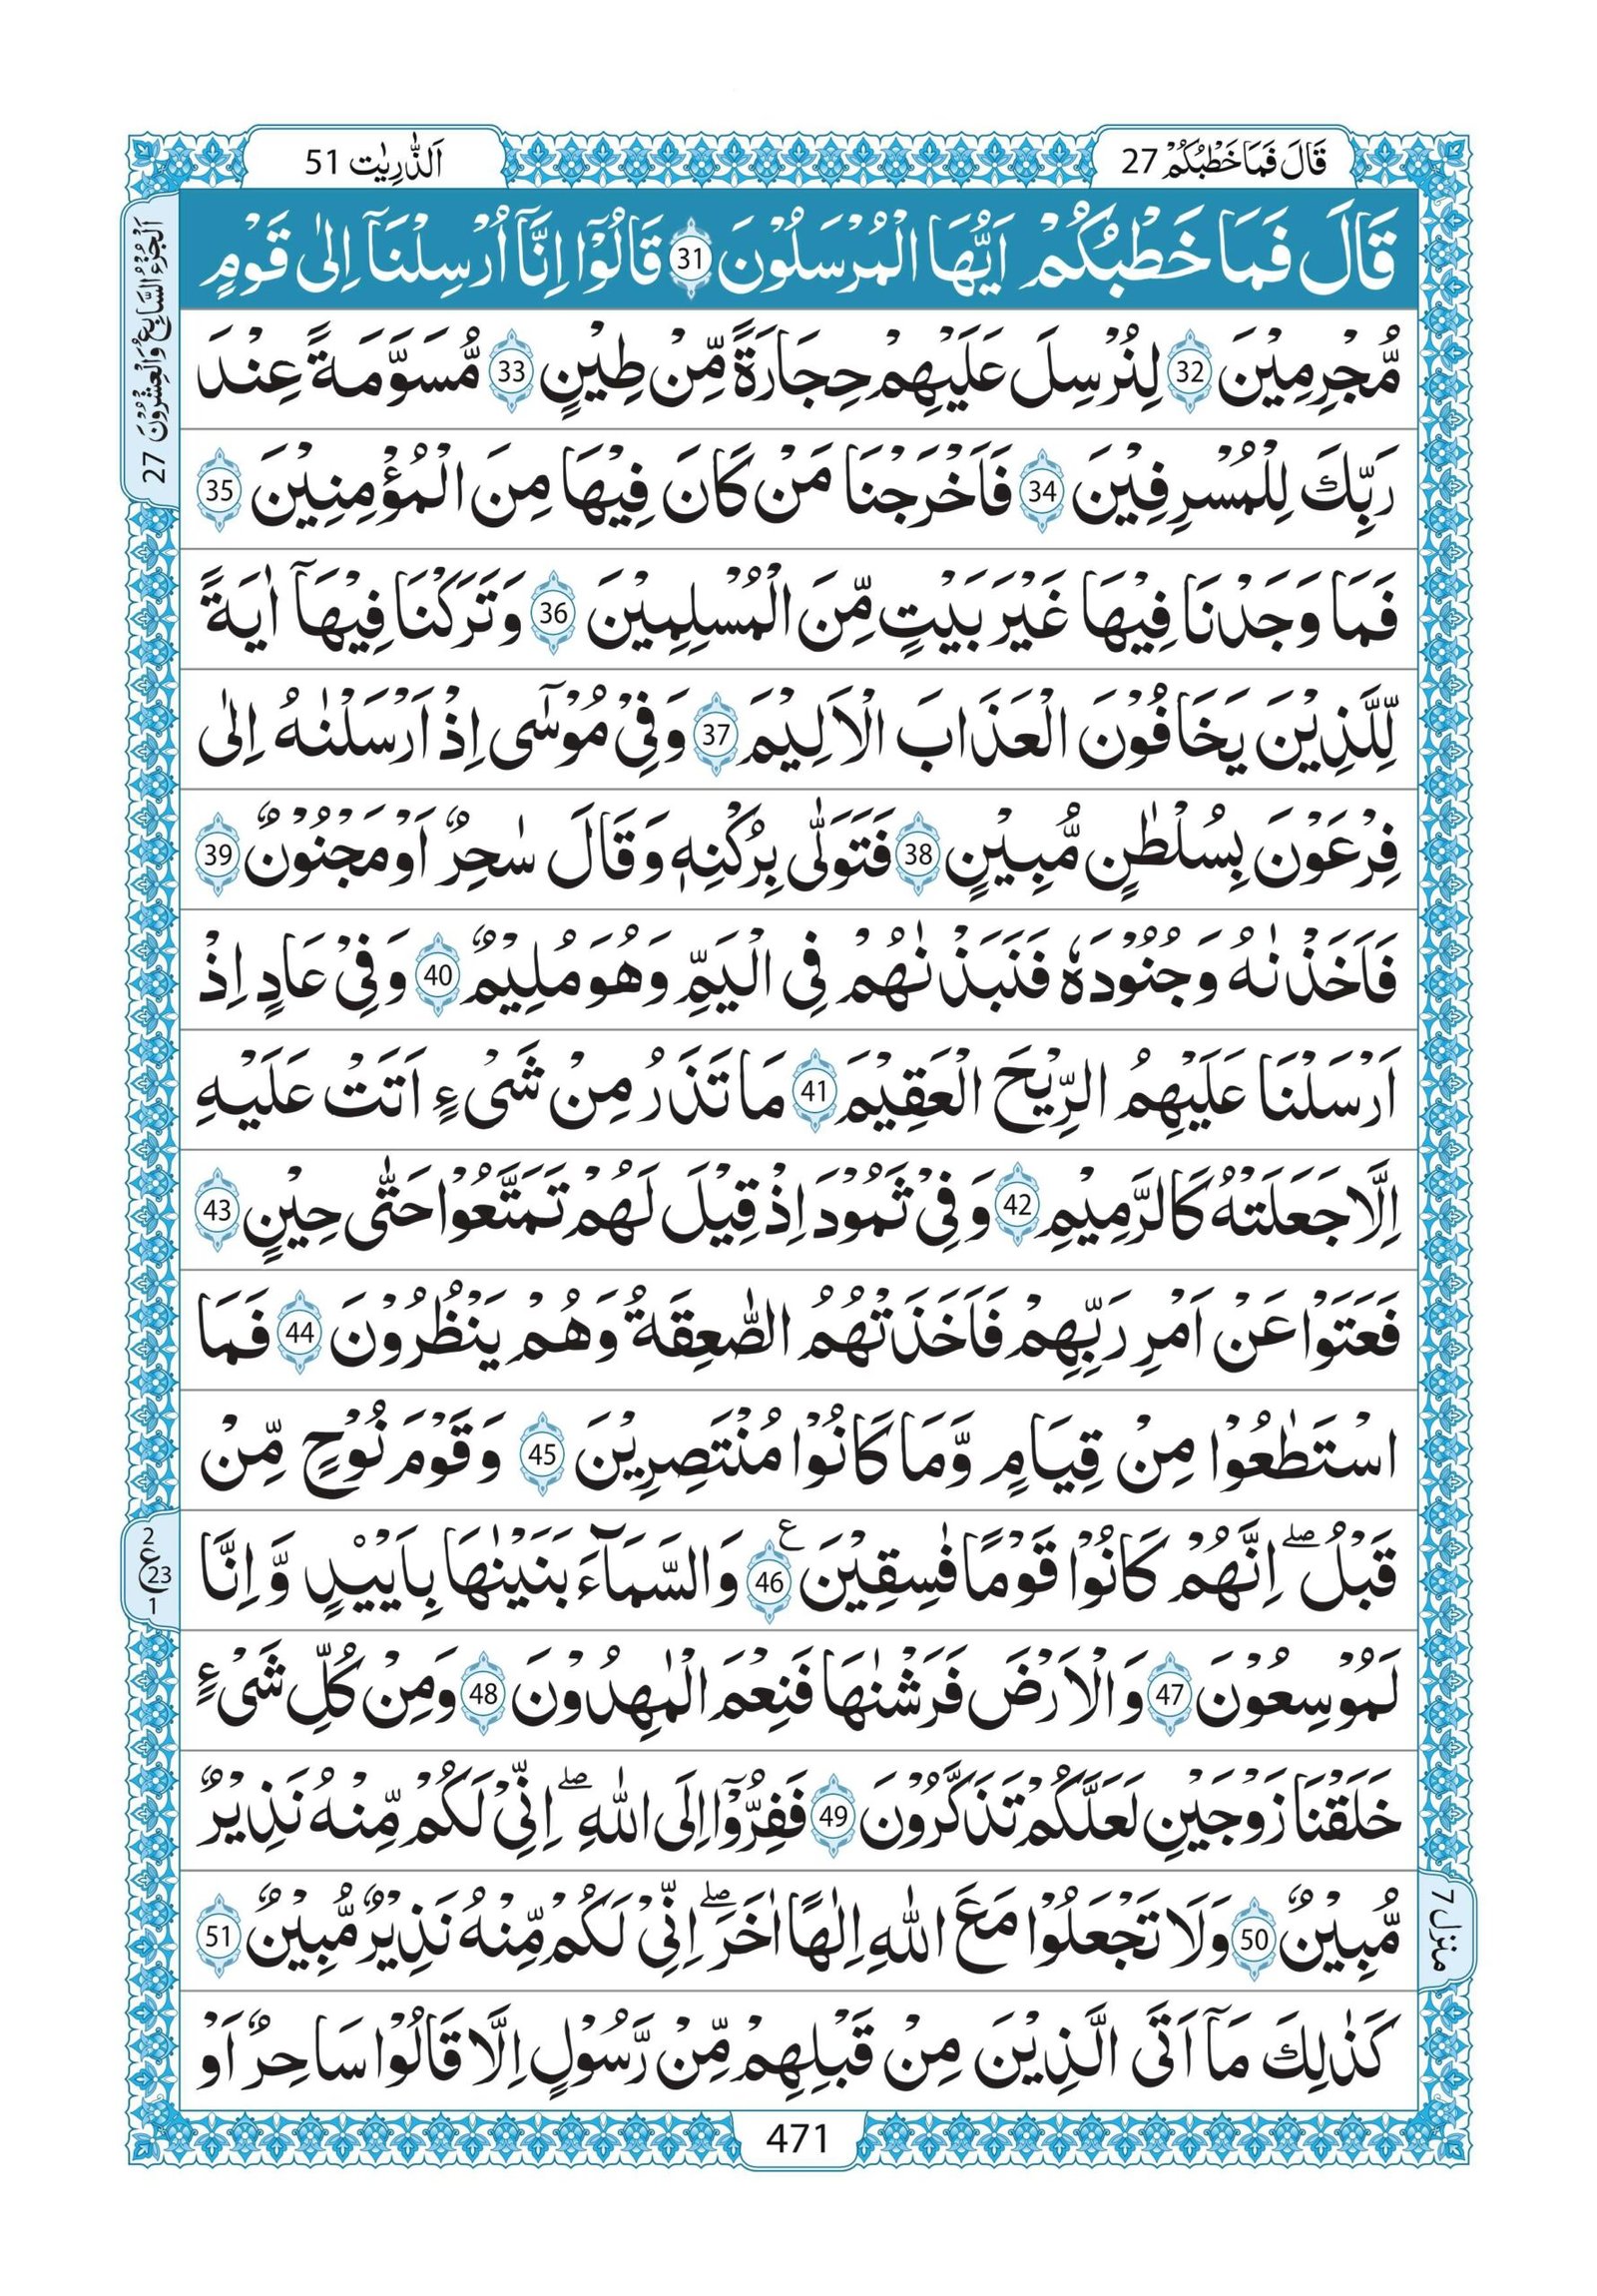 اَلذّٰرِيٰت 51
قَالَ فَمَا خَطْبُكُمْ 27
قَالَ فَمَا خَطْبُكُمْ اَيُّهَا الْمُرْسَلُوْنَ 31 قَالُوْٓا اِنَّآ اُرْسِلْنَآ اِلٰى قَوْمٍ
مُّجْرِمِيْنَ 32 لِنُرْسِلَ عَلَيْهِمْ حِجَارَةً مِّنْ طِيْنٍ 33 مُّسَوَّمَةً عِنْدَ
رَبِّكَ لِلْمُسْرِفِيْنَ 34 فَاَخْرَجْنَا مَنْ كَانَ فِيْهَا مِنَ الْمُؤْمِنِيْنَ 35
فَمَا وَجَدْنَا فِيْهَا غَيْرَ بَيْتٍ مِّنَ الْمُسْلِمِيْنَ 36 وَتَرَكْنَا فِيْهَآ اٰيَةً
لِّلَّذِيْنَ يَخَافُوْنَ الْعَذَابَ الْاَلِيْمَ 37 وَفِيْ مُوْسٰٓى اِذْ اَرْسَلْنٰهُ اِلٰى
فِرْعَوْنَ بِسُلْطٰنٍ مُّبِيْنٍ 38 فَتَوَلّٰى بِرُكْنِهٖ وَقَالَ سٰحِرٌ اَوْ مَجْنُوْنٌ 39
فَاَخَذْنٰهُ وَجُنُوْدَهٗ فَنَبَذْنٰهُمْ فِي الْيَمِّ وَهُوَ مُلِيْمٌ 40 وَفِيْ عَادٍ اِذْ
اَرْسَلْنَا عَلَيْهِمُ الرِّيْحَ الْعَقِيْمَ 41 مَا تَذَرُ مِنْ شَيْءٍ اَتَتْ عَلَيْهِ
اِلَّا جَعَلَتْهُ كَالرَّمِيْمِ 42 وَفِيْ ثَمُوْدَ اِذْ قِيْلَ لَهُمْ تَمَتَّعُوْا حَتّٰى حِيْنٍ 43
فَعَتَوْا عَنْ اَمْرِ رَبِّهِمْ فَاَخَذَتْهُمُ الصّٰعِقَةُ وَهُمْ يَنْظُرُوْنَ 44 فَمَا
اسْتَطٰعُوْا مِنْ قِيَامٍ وَّمَا كَانُوْا مُنْتَصِرِيْنَ 45 وَقَوْمَ نُوْحٍ مِّنْ
قَبْلُ ۖ اِنَّهُمْ كَانُوْا قَوْمًا فٰسِقِيْنَ ع 46 وَالسَّمَآءَ بَنَيْنٰهَا بِاَيْىدٍ وَّاِنَّا
لَمُوْسِعُوْنَ 47 وَالْاَرْضَ فَرَشْنٰهَا فَنِعْمَ الْمٰهِدُوْنَ 48 وَمِنْ كُلِّ شَيْءٍ
خَلَقْنَا زَوْجَيْنِ لَعَلَّكُمْ تَذَكَّرُوْنَ 49 فَفِرُّوْٓا اِلَى اللّٰهِ ۖ اِنِّيْ لَكُمْ مِّنْهُ نَذِيْرٌ
مُّبِيْنٌ 50 وَلَا تَجْعَلُوْا مَعَ اللّٰهِ اِلٰهًا اٰخَرَ ۖ اِنِّيْ لَكُمْ مِّنْهُ نَذِيْرٌ مُّبِيْنٌ 51
كَذٰلِكَ مَآ اَتَى الَّذِيْنَ مِنْ قَبْلِهِمْ مِّنْ رَّسُوْلٍ اِلَّا قَالُوْا سَاحِرٌ اَوْ
471
اَلْجُزْءُ السَّابِعُ وَالْعِشْرُوْنَ 27
2
ع 23
1
منزل 7